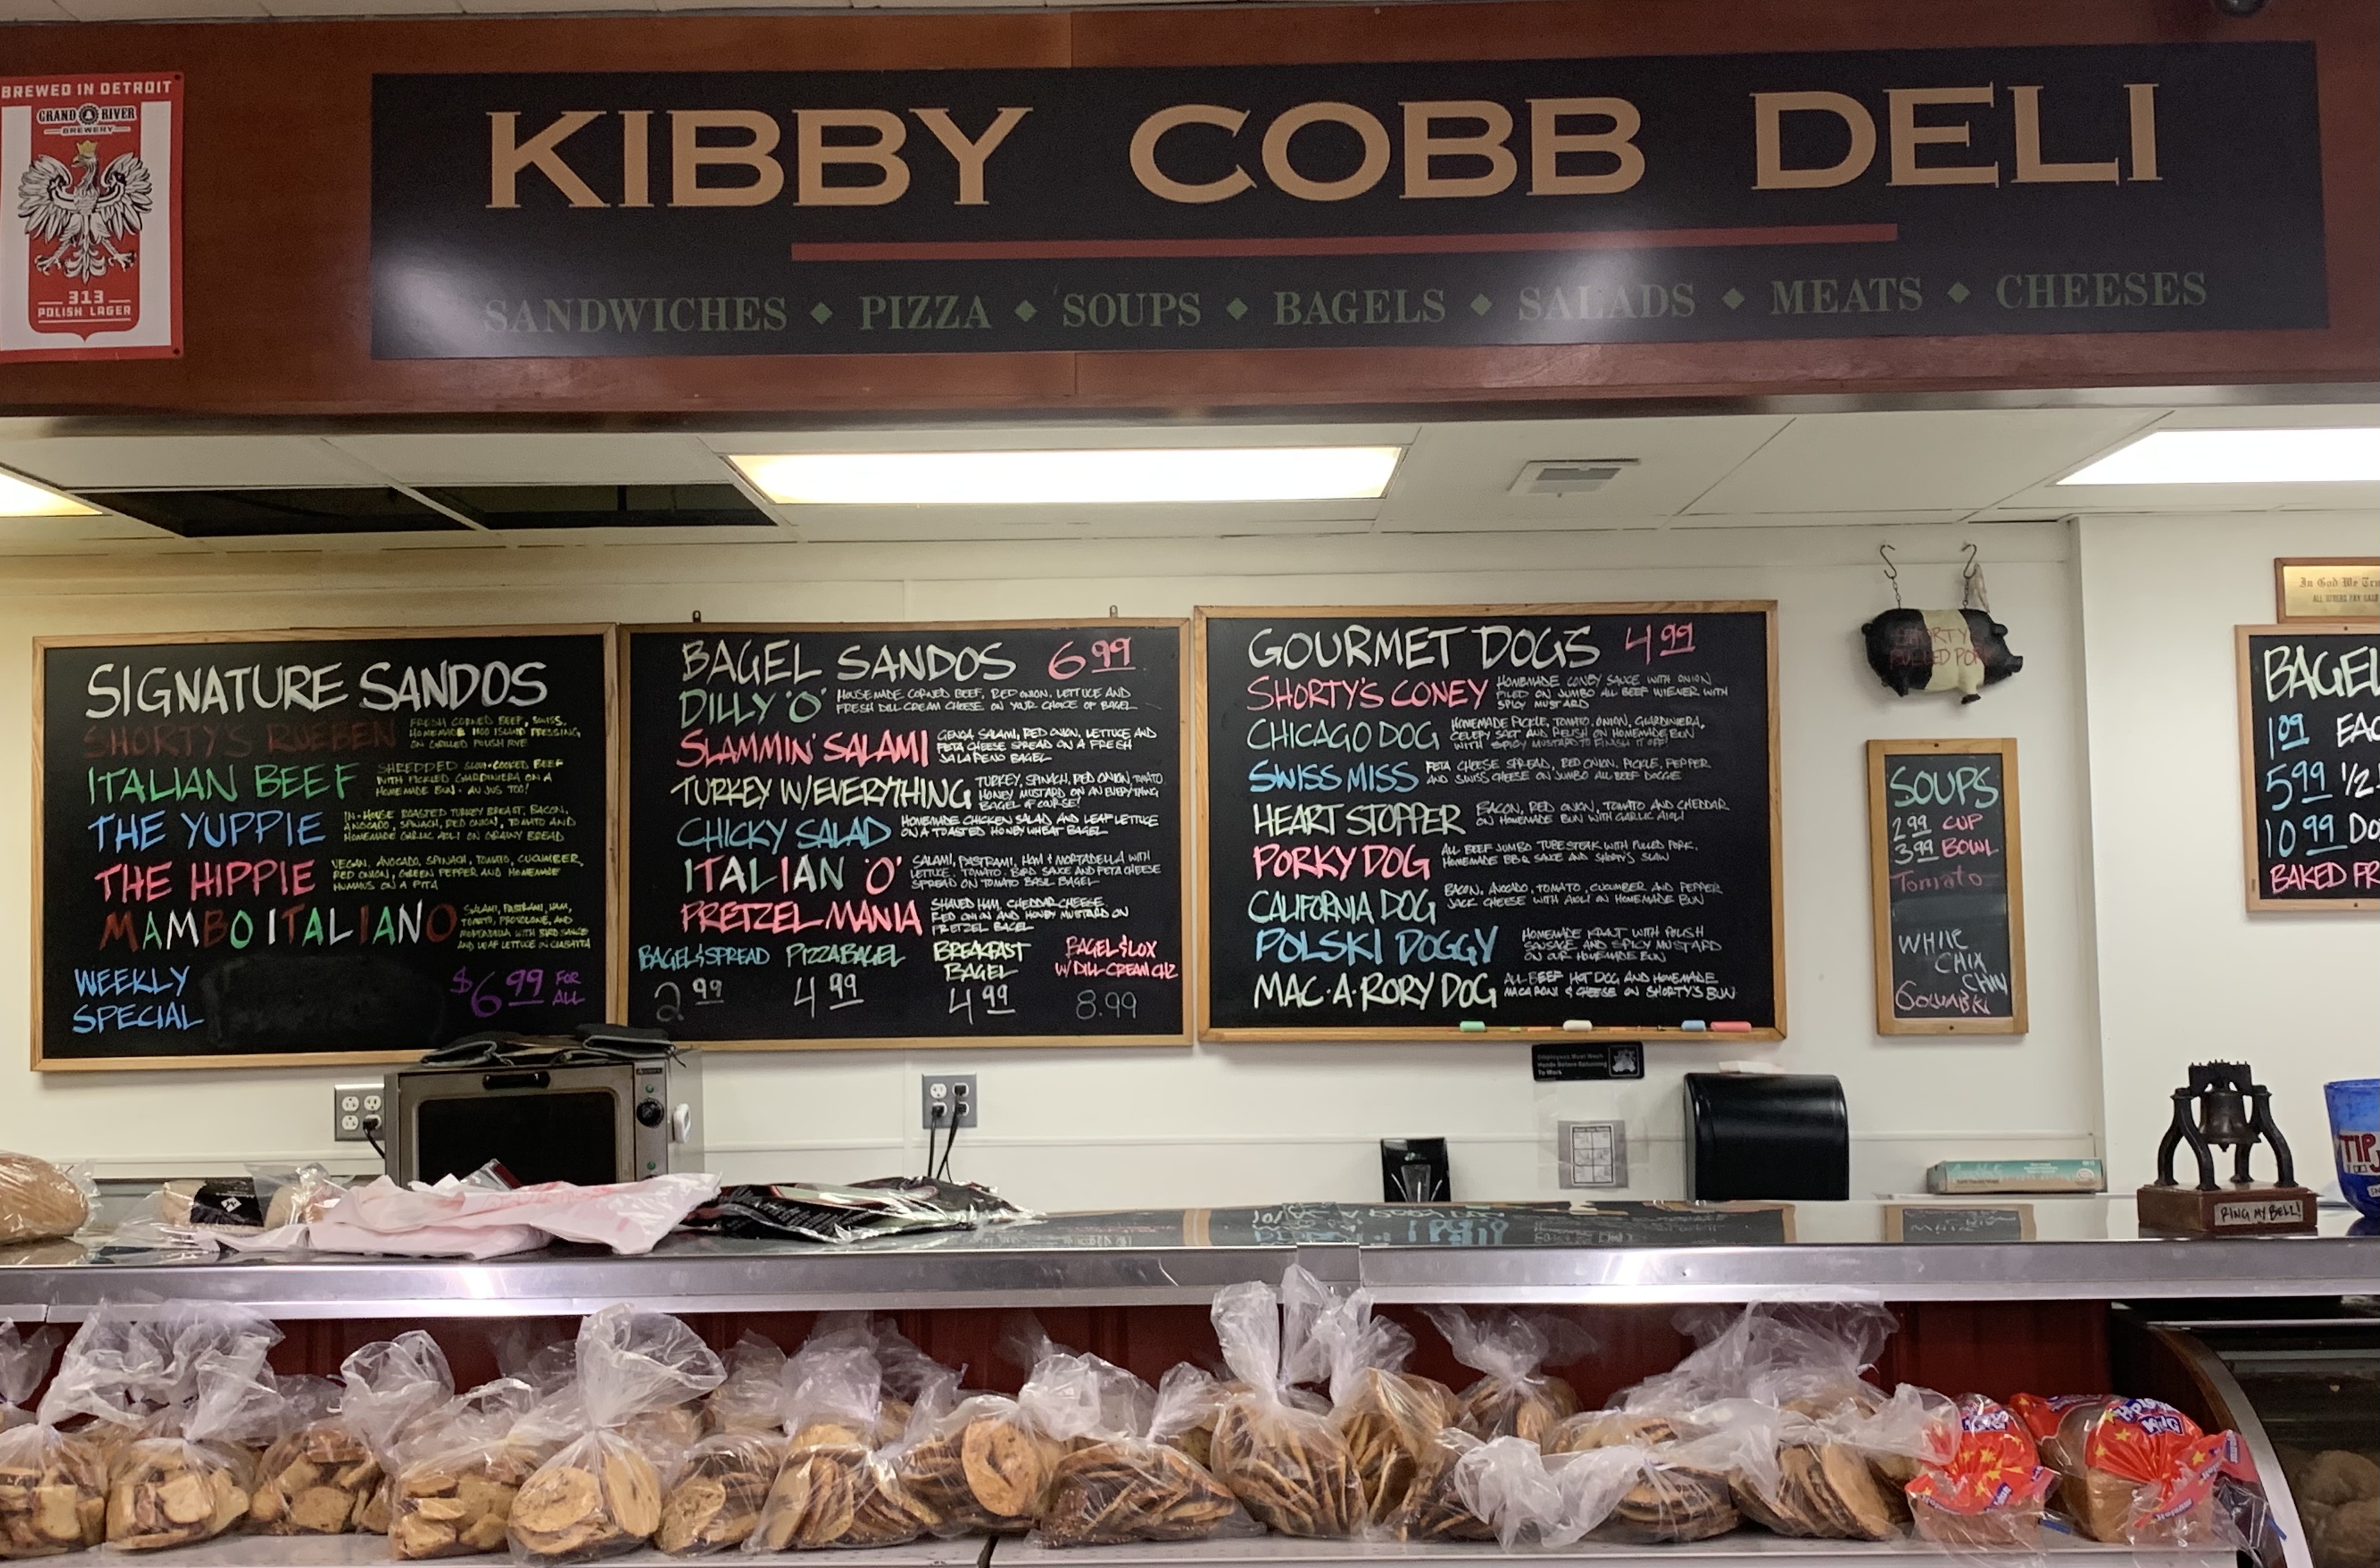 BREWED IN DETROIT
GRAND RIVER
BREWERY
313
POLISH LAGER
KIBBY COBB DELI
SANDWICHES ◆ PIZZA ◆ SOUPS ◆ BAGELS ◆ SALADS ◆ MEATS ◆ CHEESES
SIGNATURE SANDOS
SHORTY'S RUEBEN
FRESH CORNED BEEF, SWISS,
HOMEMADE 1000 ISLAND DRESSING
ON GRILLED POLISH RYE
ITALIAN BEEF
SHREDDED SLOW-COOKED BEEF
WITH PICKLED GIARDINIERA ON A
HOMEMADE BUN - AU JUS TOO!
THE YUPPIE
IN-HOUSE ROASTED TURKEY BREAST, BACON,
AVOCADO, SPINACH, RED ONION, TOMATO AND
HOMEMADE GARLIC AIOLI ON GRAINY BREAD
THE HIPPIE
VEGAN. AVOCADO, SPINACH, TOMATO, CUCUMBER,
RED ONION, GREEN PEPPER AND HOMEMADE
HUMMUS ON A PITA
MAMBO ITALIANO
SALAMI, PASTRAMI, HAM,
TOMATO, PROVOLONE, AND
MORTADELLA WITH BIRD SAUCE
AND LEAF LETTUCE IN CIABATTA
WEEKLY
SPECIAL
$6 99 FOR
ALL
BAGEL SANDOS 6 99
DILLY 'O'
HOUSEMADE CORNED BEEF, RED ONION, LETTUCE AND
FRESH DILL CREAM CHEESE ON YOUR CHOICE OF BAGEL
SLAMMIN' SALAMI
GENOA SALAMI, RED ONION, LETTUCE AND
FETA CHEESE SPREAD ON A FRESH
JALAPENO BAGEL
TURKEY W/EVERYTHING
TURKEY, SPINACH, RED ONION, TOMATO
HONEY MUSTARD ON AN EVERYTHING
BAGEL OF COURSE!
CHICKY SALAD
HOMEMADE CHICKEN SALAD AND LEAF LETTUCE
ON A TOASTED HONEY WHEAT BAGEL
ITALIAN 'O'
SALAMI, PASTRAMI, HAM & MORTADELLA WITH
LETTUCE, TOMATO, BIRD SAUCE AND FETA CHEESE
SPREAD ON TOMATO BASIL BAGEL
PRETZEL MANIA
SHAVED HAM, CHEDDAR CHEESE,
RED ONION AND HONEY MUSTARD ON
PRETZEL BAGEL
BAGEL & SPREAD
2 99
PIZZA BAGEL
4 99
BREAKFAST
BAGEL
4 99
BAGEL & LOX
W/ DILL CREAM CHZ
8.99
GOURMET DOGS 4 99
SHORTY'S CONEY
HOMEMADE CONEY SAUCE WITH ONION
PILED ON JUMBO ALL BEEF WIENER WITH
SPICY MUSTARD
CHICAGO DOG
HOMEMADE PICKLE, TOMATO, ONION, GIARDINIERA,
CELERY SALT AND RELISH ON HOMEMADE BUN
WITH SPICY MUSTARD TO FINISH IT OFF!
SWISS MISS
FETA CHEESE SPREAD, RED ONION, PICKLE, PEPPER
AND SWISS CHEESE ON JUMBO ALL BEEF DOGGIE
HEART STOPPER
BACON, RED ONION, TOMATO AND CHEDDAR
ON HOMEMADE BUN WITH GARLIC AIOLI
PORKY DOG
ALL BEEF JUMBO TUBE STEAK WITH PULLED PORK,
HOMEMADE BBQ SAUCE AND SHORTY'S SLAW
CALIFORNIA DOG
BACON, AVOCADO, TOMATO, CUCUMBER AND PEPPER
JACK CHEESE WITH AIOLI ON HOMEMADE BUN
POLSKI DOGGY
HOMEMADE KRAUT WITH POLISH
SAUSAGE AND SPICY MUSTARD
ON OUR HOMEMADE BUN
MAC·A·RORY DOG
ALL-BEEF HOT DOG AND HOMEMADE
MACARONI & CHEESE ON SHORTY'S BUN
SHORTY'S
PULLED PORK
SOUPS
2 99 CUP
3 99 BOWL
Tomato
WHITE
CHIX
CHILI
GOLUMBKI
In God We Tru
ALL OTHERS PAY CASH
BAGEL
1 09 EAC
5 99 1/2
10 99 DO
BAKED FR
Employees Must Wash
Hands Before Returning
To Work
RING MY BELL!
TIP